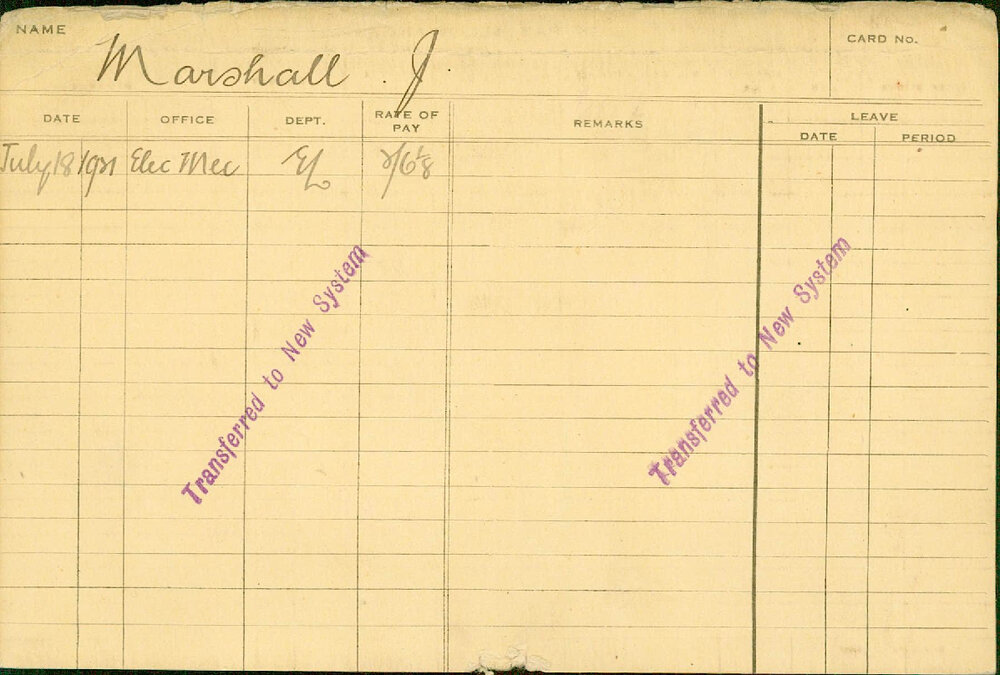 NAME
Marshall J.
CARD No.
DATE OFFICE DEPT. RATE OF PAY REMARKS LEAVE
DATE PERIOD
July 18 1921 Elec Mec EL 2/6 1/8
Transferred to New System
Transferred to New System